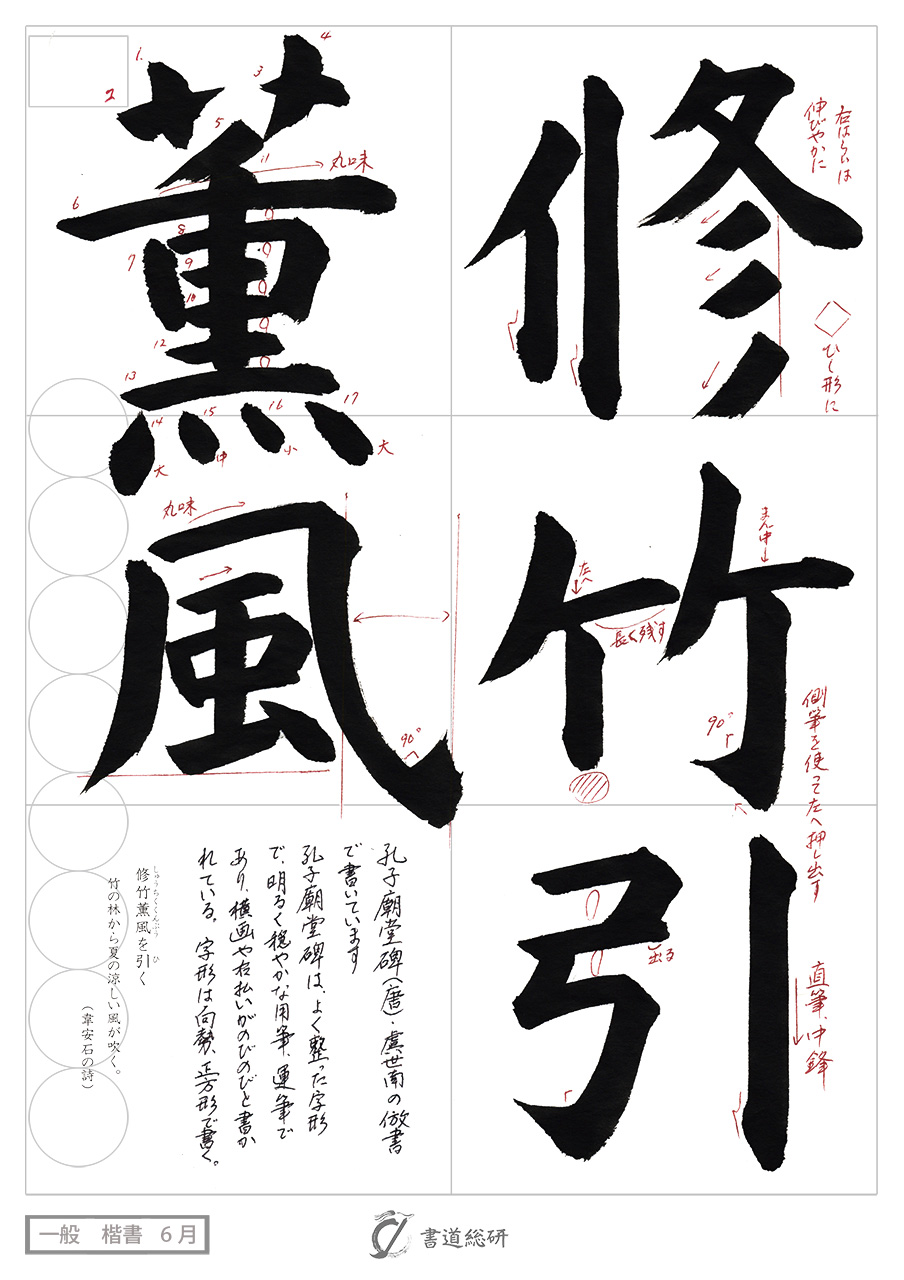 修竹引
薫風
右はらいは
伸びやかに
ひし形に
まん中
左へ
長く残す
90°
側筆を使って左へ押し出す
出る
直筆、中鋒
1.
2
3
4
5
6
7
8
9
10
11
12
13
14
15
16
17
丸味
大
中
小
大
丸味
90°
孔子廟堂碑(唐)・虞世南の倣書
で書いています
孔子廟堂碑は、よく整った字形
で、明るく穏やかな用筆、運筆で
あり、横画や右払いがのびのびと書か
れている。字形は向勢、正方形で書く。
しゅうちくくんぷう ひ
修竹薫風を引く
竹の林から夏の涼しい風が吹く。
(韋安石の詩)
一般 楷書 6月
書道総研